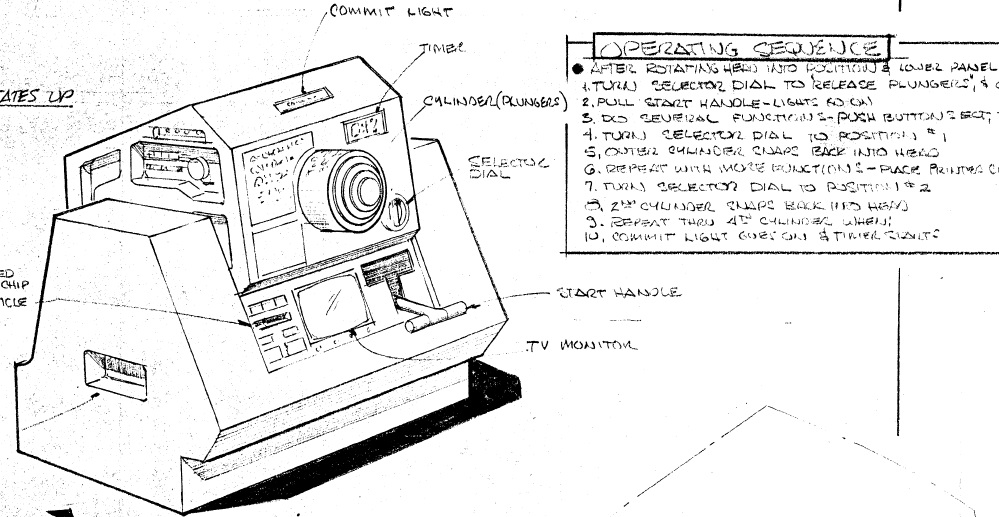 COMMIT LIGHT
TIMER
ATES UP
CYLINDER (PLUNGERS)
SELECTOR
DIAL
ED
CHIP
ICLE
START HANDLE
TV MONITOR
OPERATING SEQUENCE
● AFTER ROTATING HEAD INTO POSITION & LOWER PANEL
1. TURN SELECTOR DIAL TO "RELEASE PLUNGERS", &
2. PULL START HANDLE-LIGHTS GO ON
3. DO SEVERAL FUNCTIONS-PUSH BUTTONS ECT,
4. TURN SELECTOR DIAL TO POSITION #1
5. OUTER CYLINDER SNAPS BACK INTO HEAD
6. REPEAT WITH MORE FUNCTIONS-PLACE PRINTED
7. TURN SELECTOR DIAL TO POSITION #2
8. 2ND CYLINDER SNAPS BACK INTO HEAD
9. REPEAT THRU 4TH CYLINDER WHEN;
10. COMMIT LIGHT GOES ON & TIMER STARTS